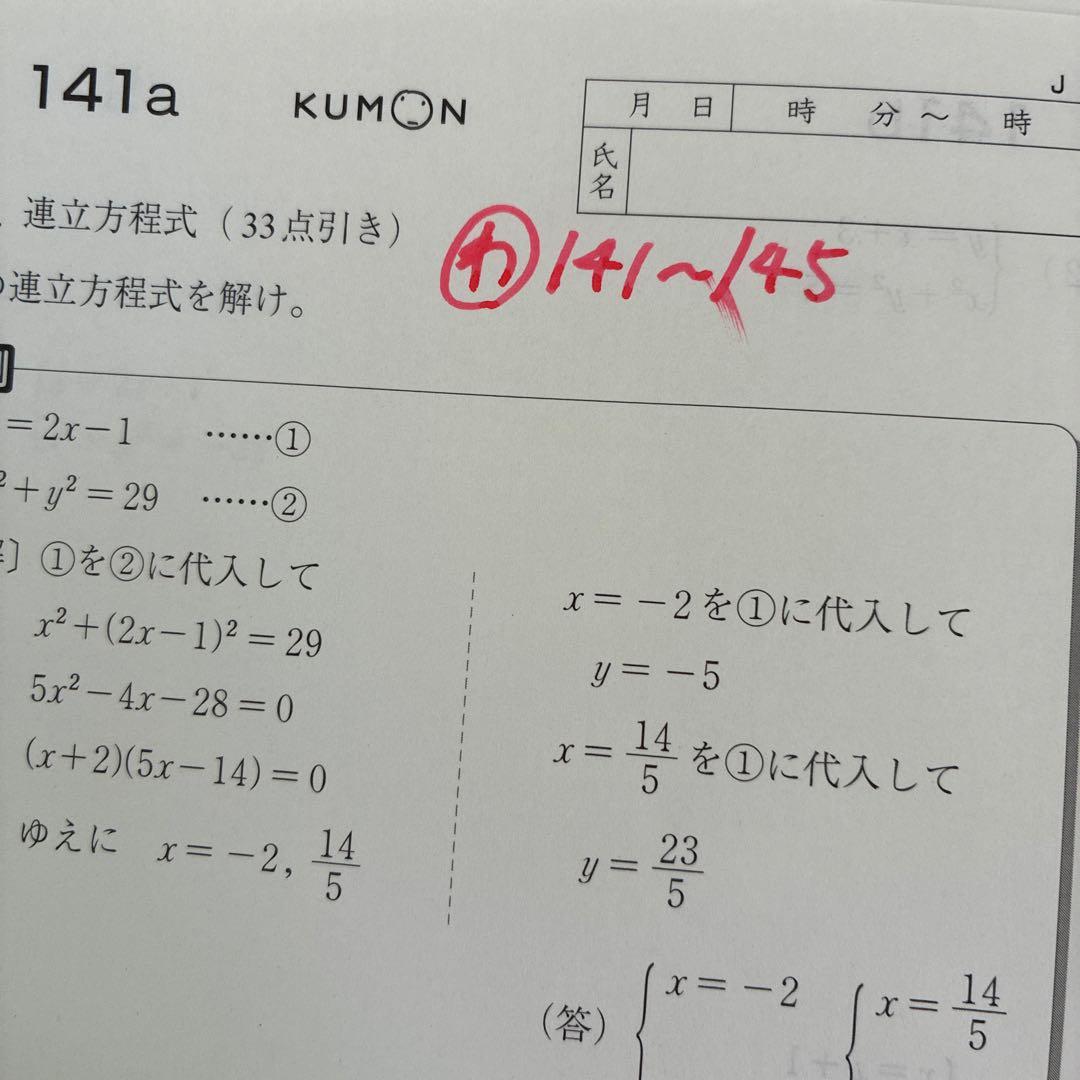 141a
KUMON
J
月 日 時 分 ～ 時
氏名
連立方程式（33点引き）
㋕ 141〜145
連立方程式を解け。
= 2x−1 ……①
²+y² = 29 ……②
〕①を②に代入して
x²+(2x−1)² = 29
5x²−4x−28 = 0
(x+2)(5x−14) = 0
ゆえに x = −2, 14/5
x = −2を①に代入して
y = −5
x = 14/5 を①に代入して
y = 23/5
（答） { x = −2 { x = 14/5